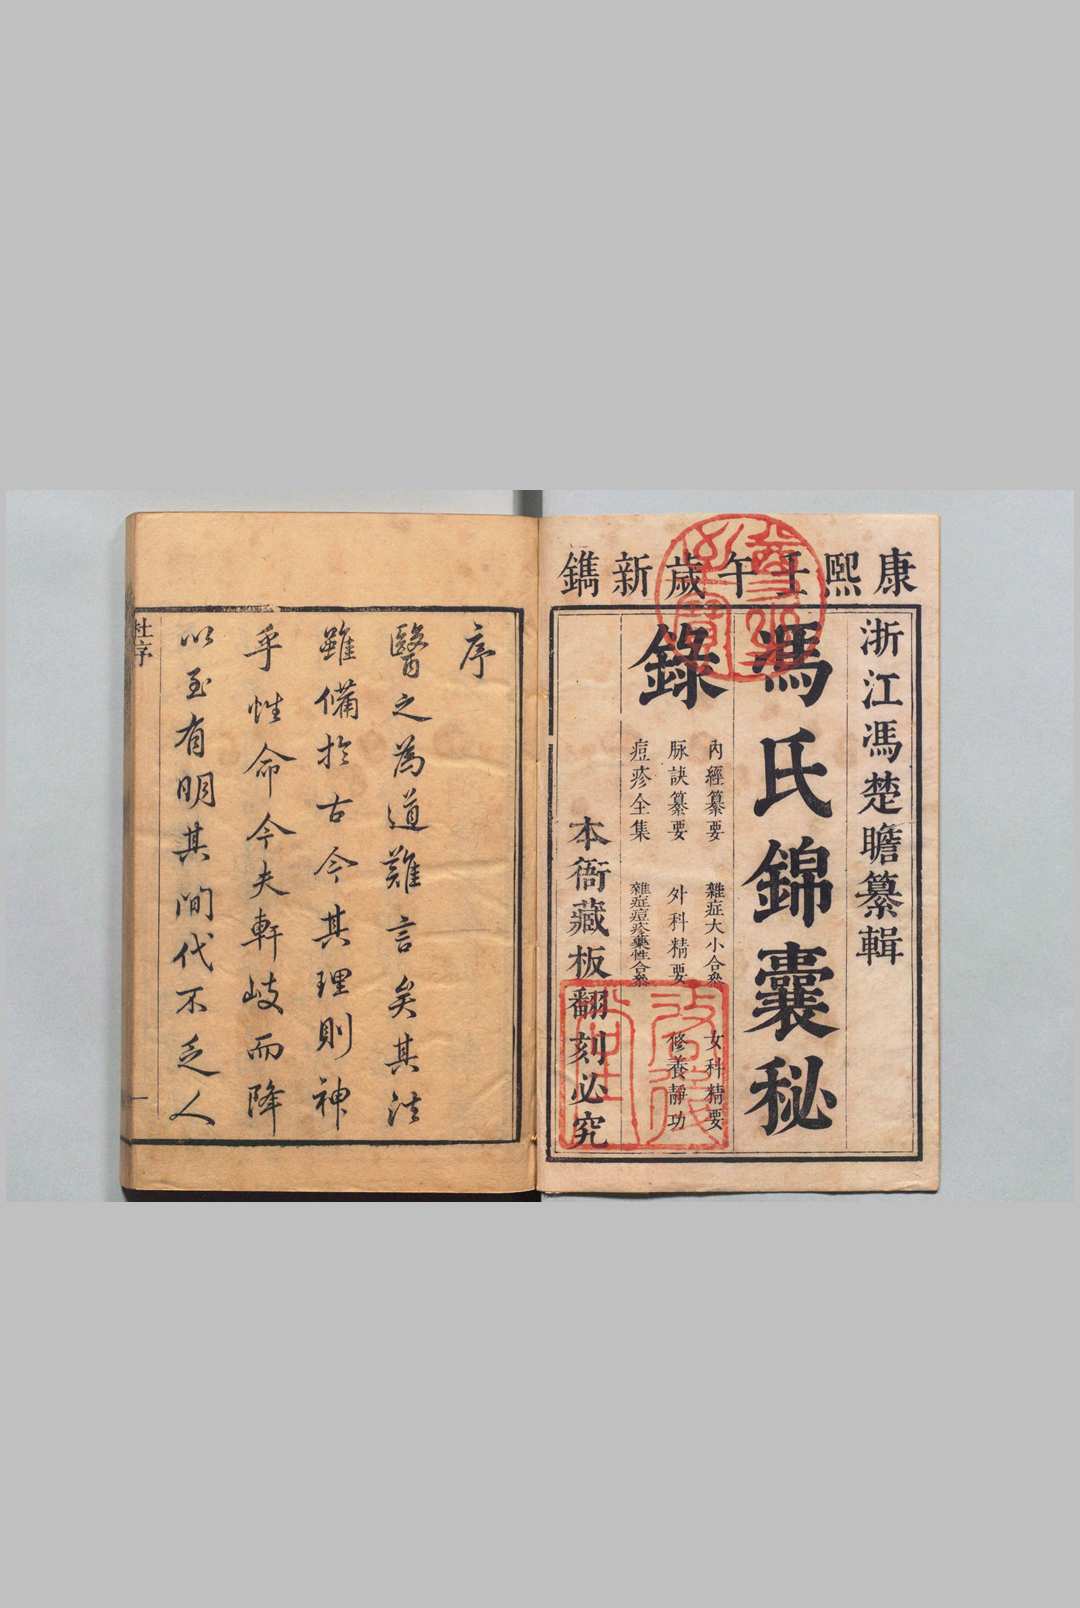 康熙壬午歲新鐫
浙江馮楚瞻纂輯
馮氏錦囊秘
錄
內經纂要
雜症大小合參
女科精要
脉訣纂要
外科精要
修養靜功
痘疹全集
雜症痘疹藥性合參
本衙藏板翻刻必究
序
醫之為道難言矣其法
雖備於古今其理則神
乎性命今夫軒岐而降
以至有明其間代不乏人
杜序
一